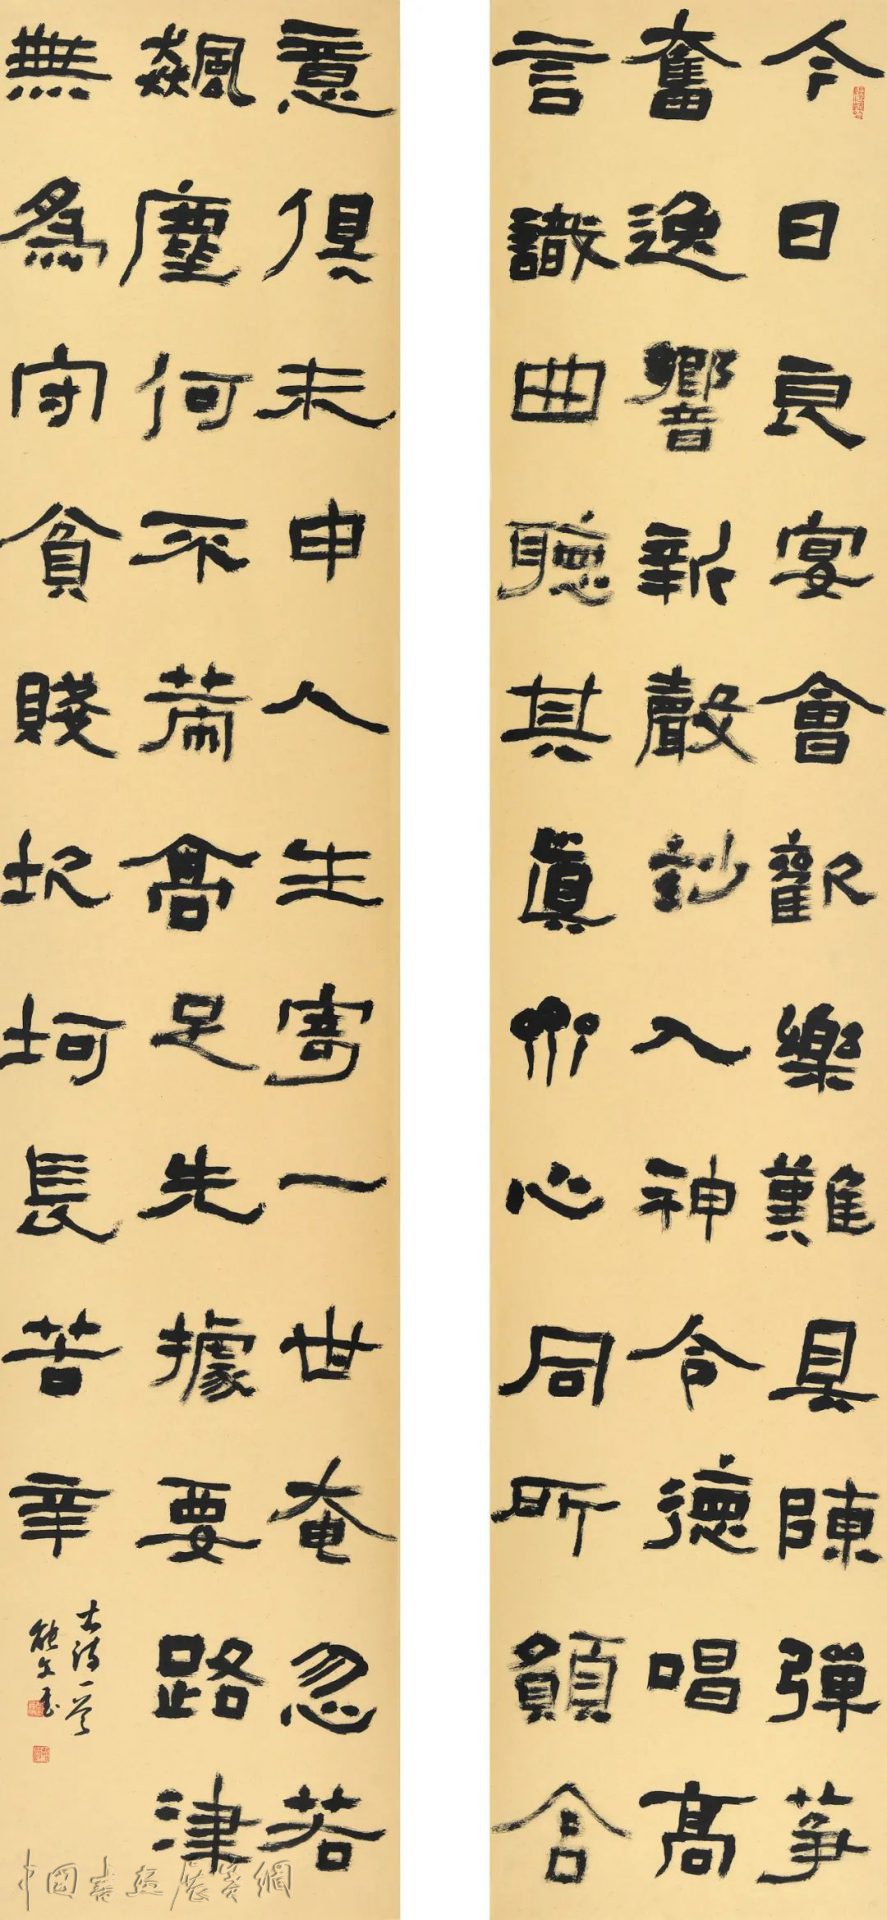 今日良宴會歡樂難具陳彈箏
奮逸響新聲妙入神令德唱高
言識曲聽其真齊心同所願含
意俱未申人生寄一世奄忽若
飆塵何不策高足先據要路津
無為守貧賤坎坷長苦辛
古詩一首
中國書法展賽網